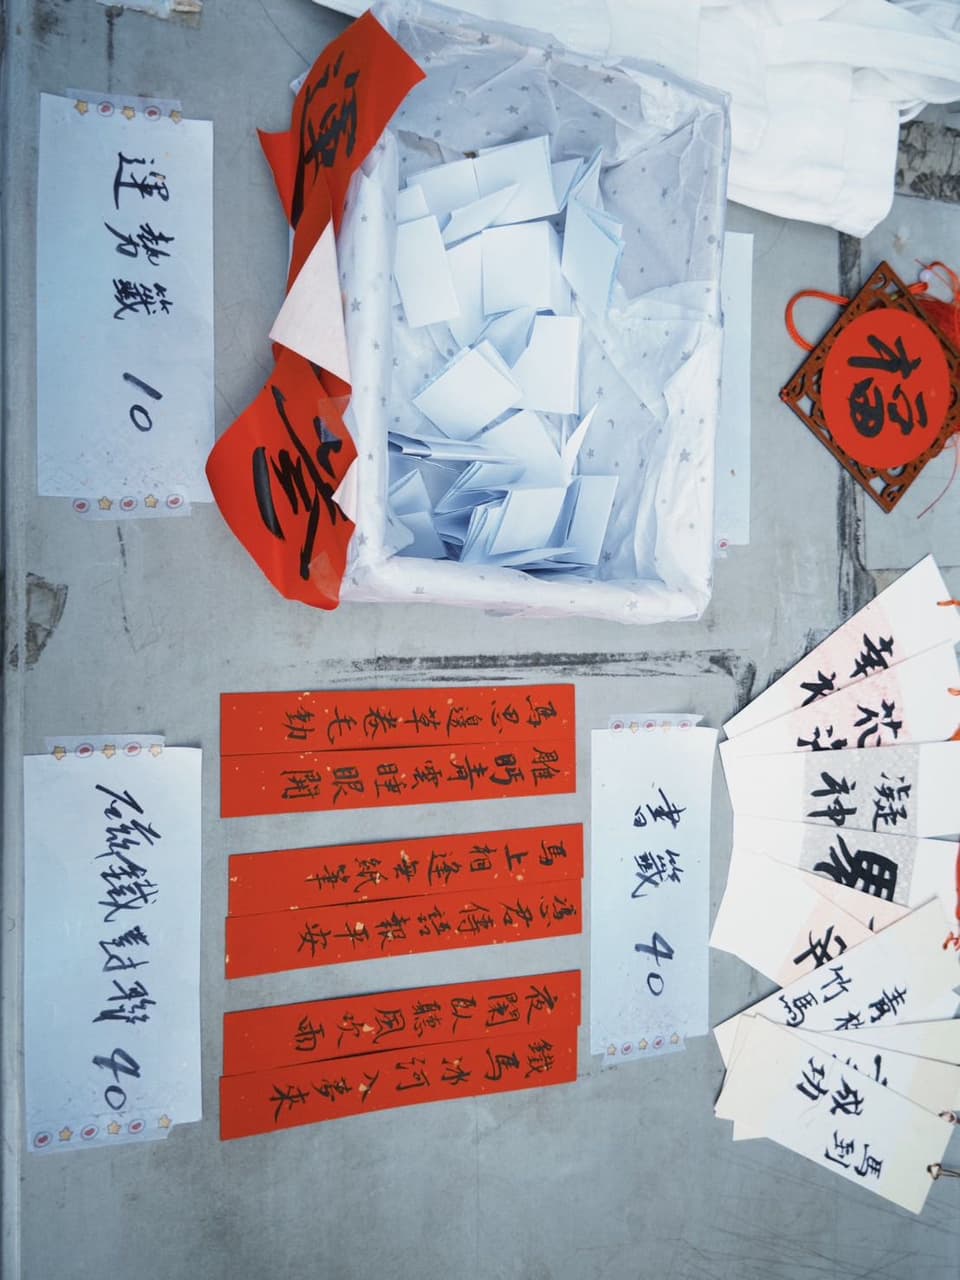 運
運勢籤 10
福
馬思邊草拳毛動
雕眄青雲睡眼開
馬上相逢無紙筆
憑君傳語報平安
夜闌臥聽風吹雨
鐵馬冰河入夢來
書籤 40
磁鐵對聯 90
幸
花
凝神
青梅
竹馬
馬到
成功